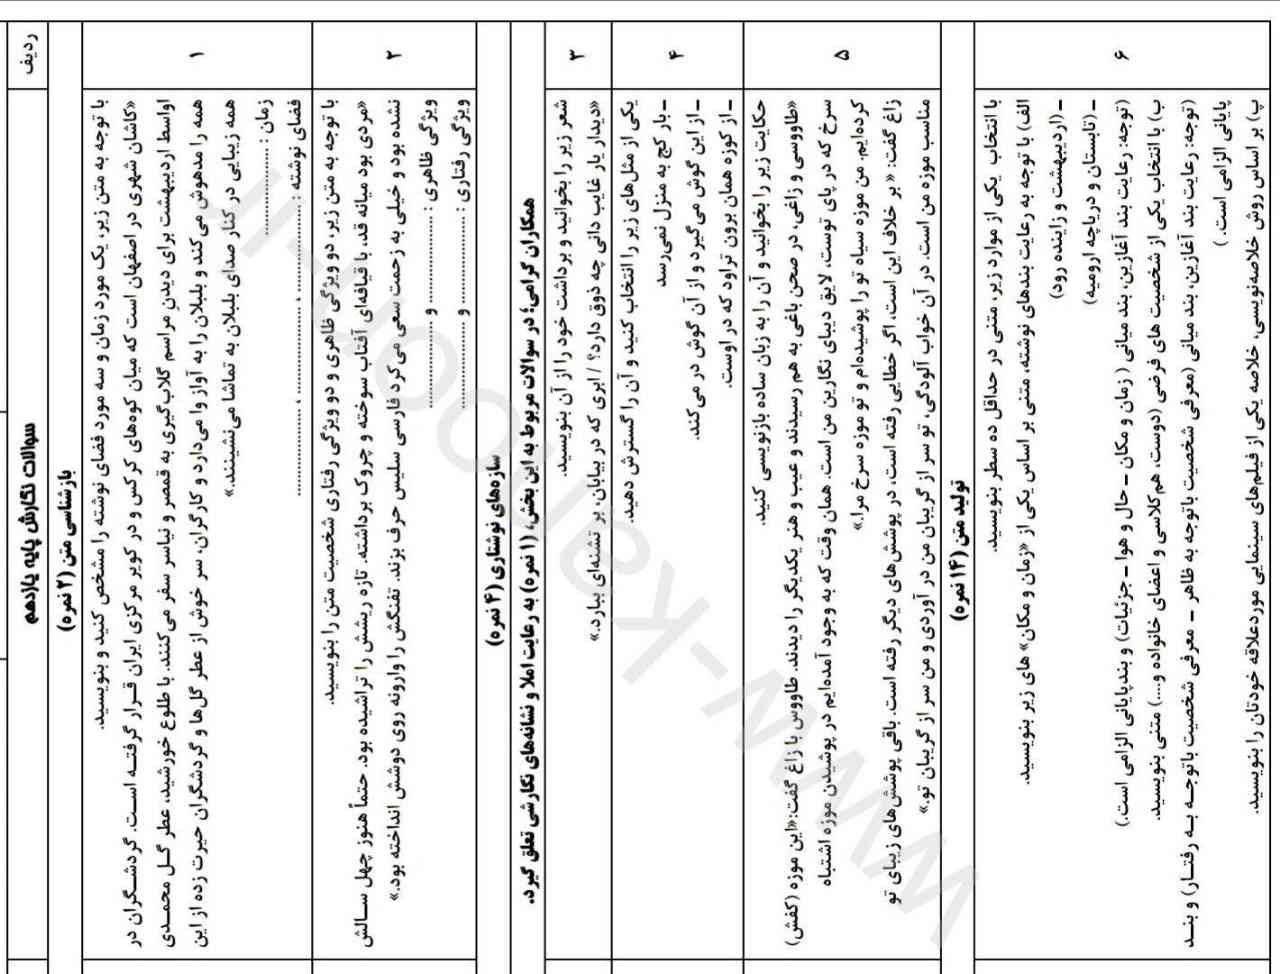 ردیف
سوالات نگارش پایه یازدهم
بازشناسی متن (۲ نمره)
۱
با توجه به متن زیر، یک مورد زمان و سه مورد فضای نوشته را مشخص کنید و بنویسید.
«کاشان شهری در اصفهان است که میان کوه‌های کرکس و در کویر مرکزی ایران قرار گرفته است. گردشگران در
اواسط اردیبهشت برای دیدن مراسم گلاب‌گیری به قمصر و نیاسر سفر می‌کنند. با طلوع خورشید، عطر گل محمدی
همه را مدهوش می‌کند و بلبلان را به آواز وا می‌دارد و کارگران، سر خوش از عطر گل‌ها و گردشگران حیرت زده از این
همه زیبایی در کنار صدای بلبلان به تماشا می‌نشینند.»
زمان : ...................
فضای نوشته : ................... ، ................... ، ...................
۲
با توجه به متن زیر، دو ویژگی ظاهری و دو ویژگی رفتاری شخصیت متن را بنویسید.
«مردی بود میانه قد، با قیافه‌ای آفتاب سوخته و چروک برداشته. تازه ریشش را تراشیده بود. حتماً هنوز چهل سالش
نشده بود و خیلی به زحمت سعی می‌کرد فارسی سلیس حرف بزند. تفنگش را وارونه روی دوشش انداخته بود.»
ویژگی ظاهری : ................... و ...................
ویژگی رفتاری : ................... و ...................
سازه‌های نوشتاری (۴ نمره)
همکاران گرامی؛ در سوالات مربوط به این بخش، (۱ نمره) به رعایت املا و نشانه‌های نگارشی تعلق گیرد.
۳
شعر زیر را بخوانید و برداشت خود را از آن بنویسید.
«دیدار یار غایب دانی چه ذوق دارد؟ / ابری که در بیابان، بر تشنه‌ای ببارد.»
۴
یکی از مثل‌های زیر را انتخاب کنید و آن را گسترش دهید.
ـ بار کج به منزل نمی‌رسد
ـ از این گوش می‌گیرد و از آن گوش در می‌کند.
ـ از کوزه همان برون تراود که در اوست.
۵
حکایت زیر را بخوانید و آن را به زبان ساده بازنویسی کنید.
«طاووسی و زاغی، در صحن باغی به هم رسیدند و عیب و هنر یکدیگر را دیدند. طاووس با زاغ گفت:«این موزه (کفش)
سرخ که در پای توست، لایق دیبای نگارین من است. همان وقت که به وجود آمده‌ایم در پوشیدن موزه اشتباه
کرده‌ایم. من موزه سیاه تو را پوشیده‌ام و تو موزه سرخ مرا.»
زاغ گفت: « بر خلاف این است، اگر خطایی رفته است، در پوشش‌های دیگر رفته است. باقی پوشش‌های زیبای تو
مناسب موزه من است. در آن خواب آلودگی، تو سر از گریبان من در آوردی و من سر از گریبان تو.»
تولید متن (۱۴ نمره)
۶
با انتخاب یکی از موارد زیر، متنی در حداقل ده سطر بنویسید.
الف) با توجه به رعایت بندهای نوشته، متنی بر اساس یکی از «زمان و مکان» های زیر بنویسید.
ـ (اردیبهشت و زاینده رود)
ـ (تابستان و دریاچه ارومیه)
(توجه: رعایت بند آغازین، بند میانی ( زمان و مکان ـ حال و هوا ـ جزئیات) و بندپایانی الزامی است.)
ب) با انتخاب یکی از شخصیت های فرضی (دوست، هم‌کلاسی و اعضای خانواده و....) متنی بنویسید.
(توجه: رعایت بند آغازین، بند میانی (معرفی شخصیت باتوجه به ظاهر ـ معرفی شخصیت باتوجه به رفتار) و بند
پایانی الزامی است. )
پ) بر اساس روش خلاصه‌نویسی، خلاصه یکی از فیلم‌های سینمایی موردعلاقه خودتان را بنویسید.
www-kanoon-ir